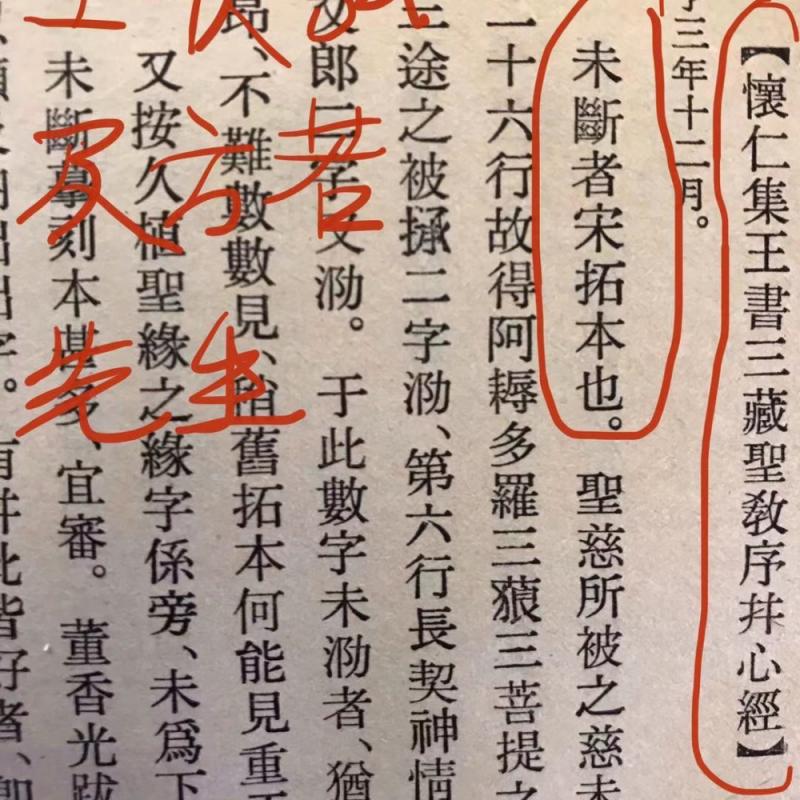 【懷仁集王書三藏聖教序并心經】
三年十二月。
未斷者宋拓本也。聖慈所被之慈未
一十六行故得阿耨多羅三藐三菩提之
三途之被拯二字泐、第六行長契神情
文郎二字又泐。于此數字未泐者、猶
昂、不難數數見、稍舊拓本何能見重
又按久植聖緣之緣字係旁、未爲下
未斷摹刻本甚多、宜審。董香光跋
及方若
先生